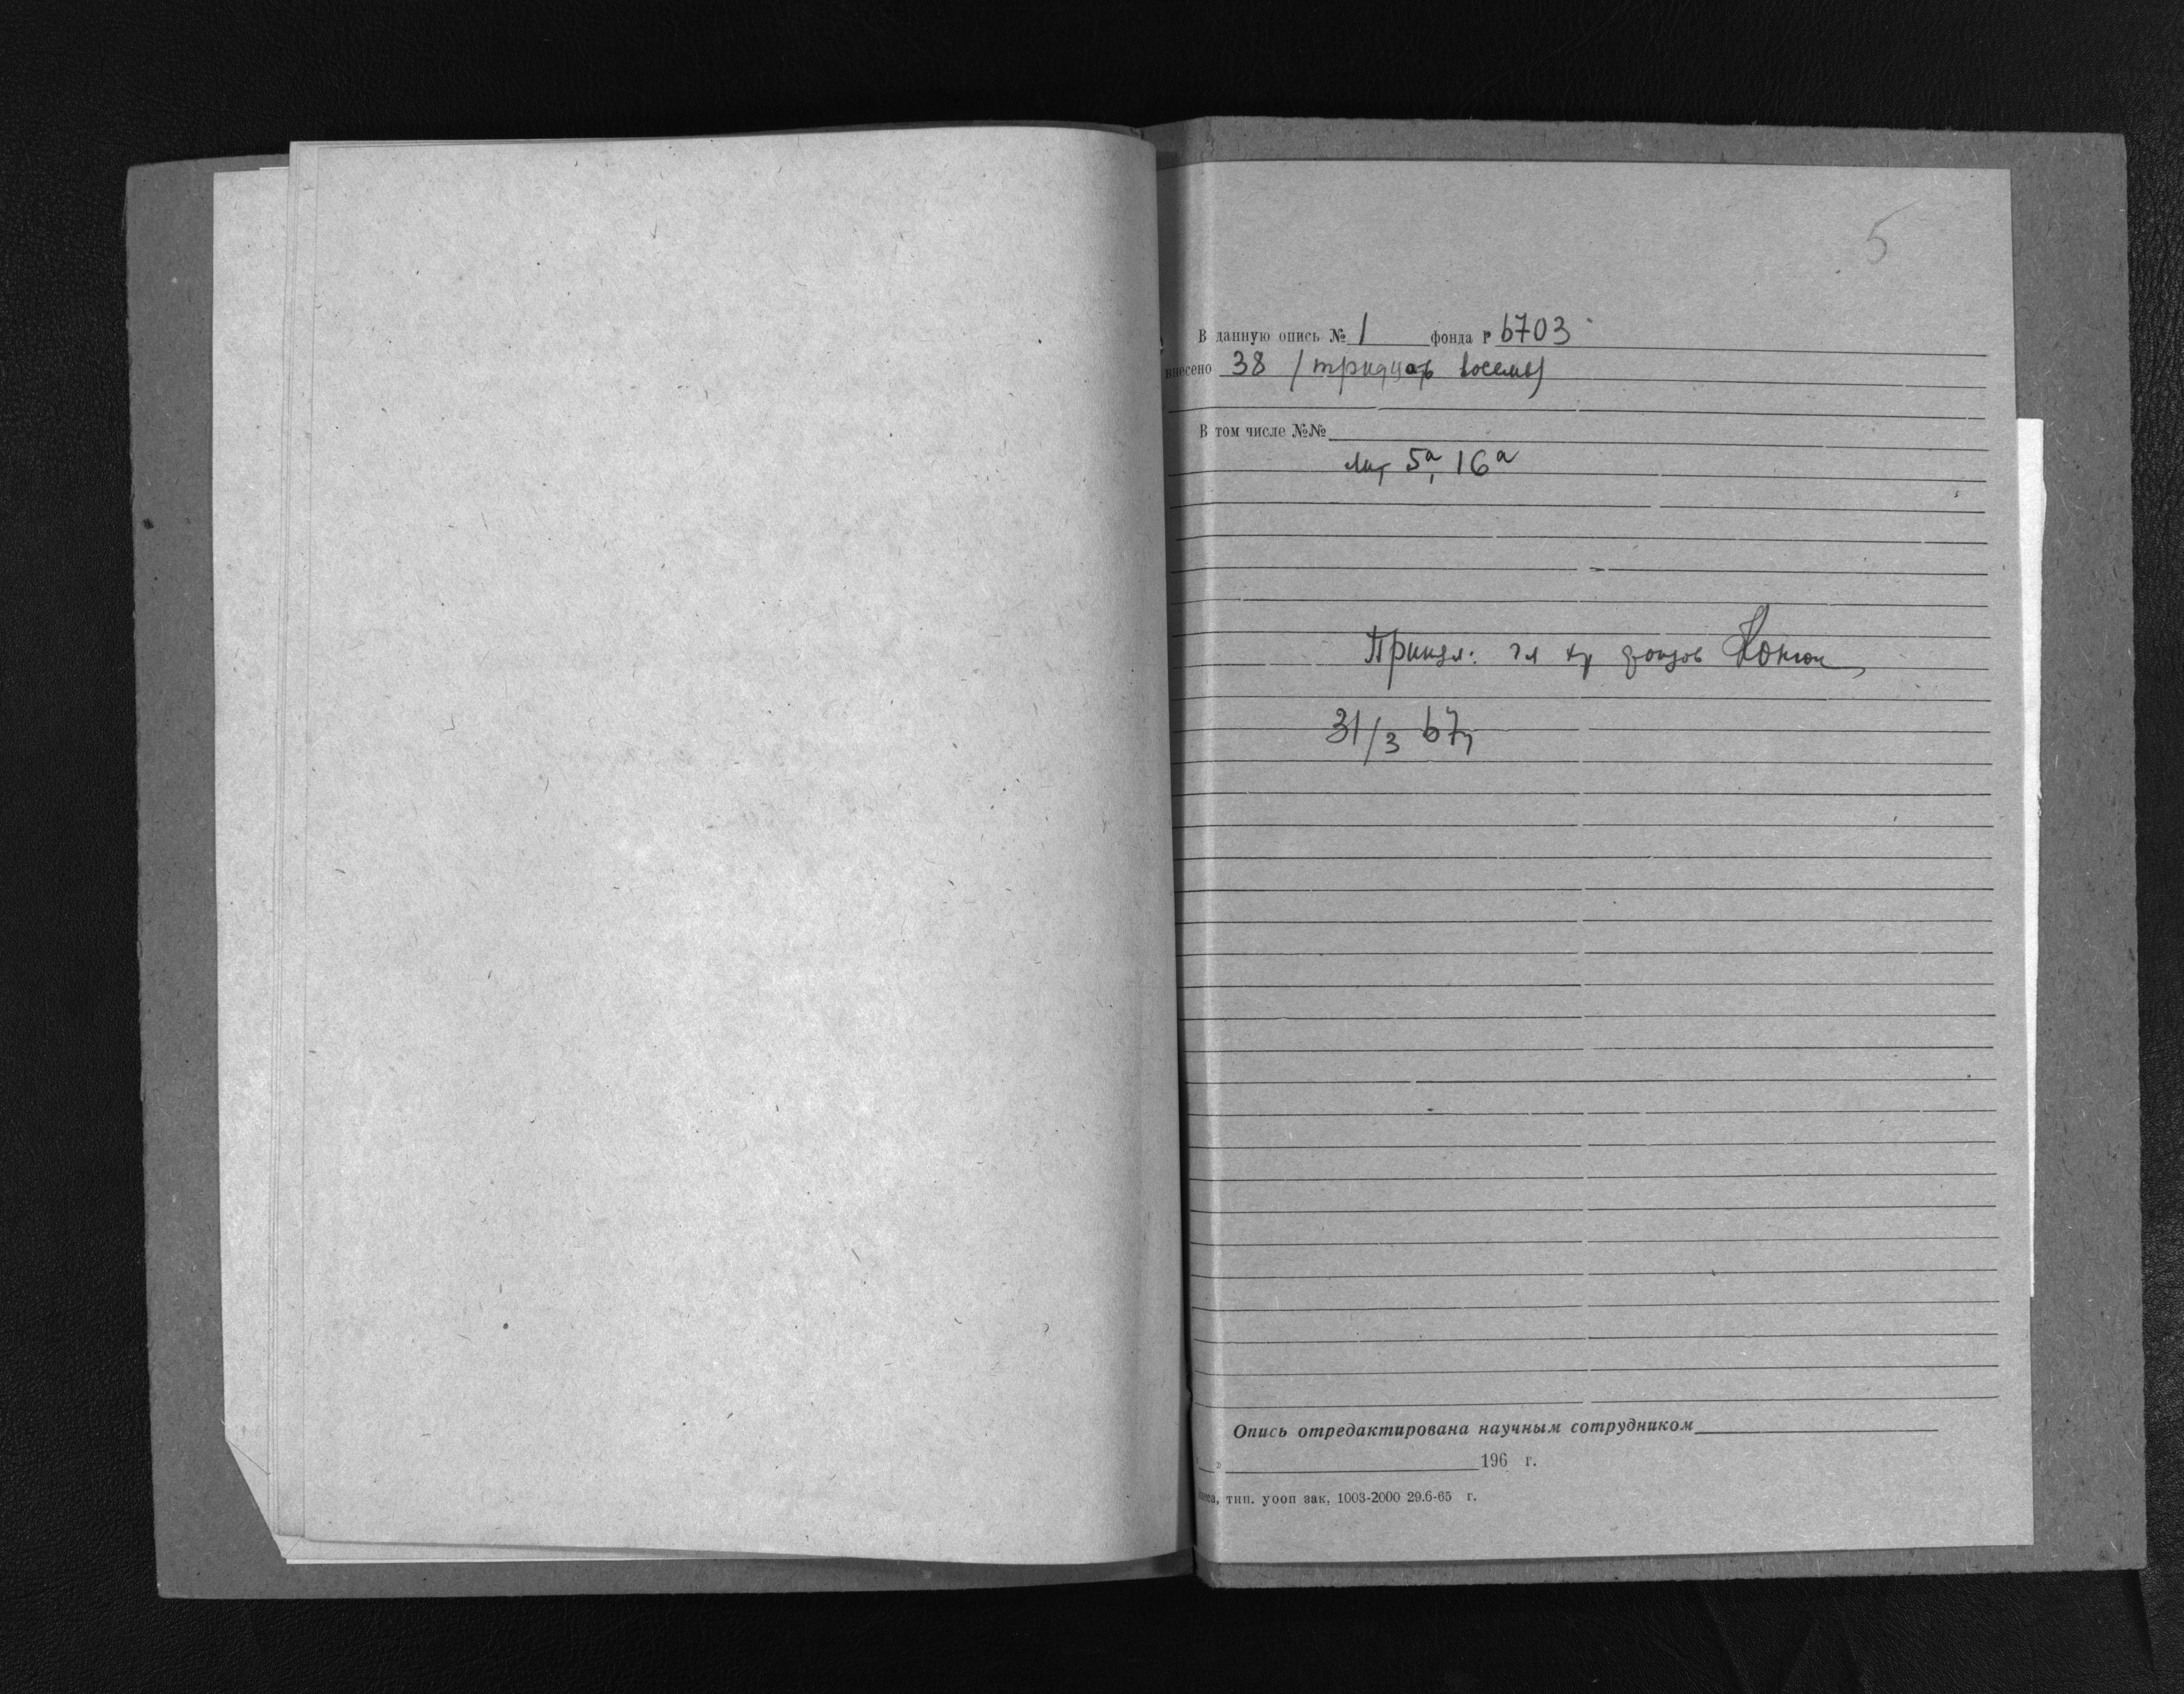 5
В данную опись № 1 фонда р 6703
внесено 38 /тридцать восемь/
В том числе №№
лит 5а, 16а
гл хр фондов
31/3 67г
Опись отредактирована научным сотрудником
" " 196 г.
тип. уооп зак, 1003-2000 29.6-65 г.